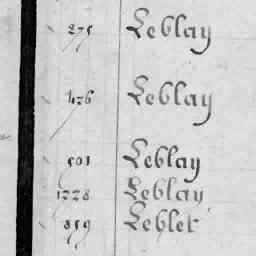 275 Leblay
476 Leblay
501 Leblay
1228 Leblay
859 Leblet